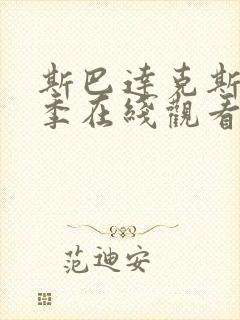 斯巴達克斯
季在綫觀看
范迪安